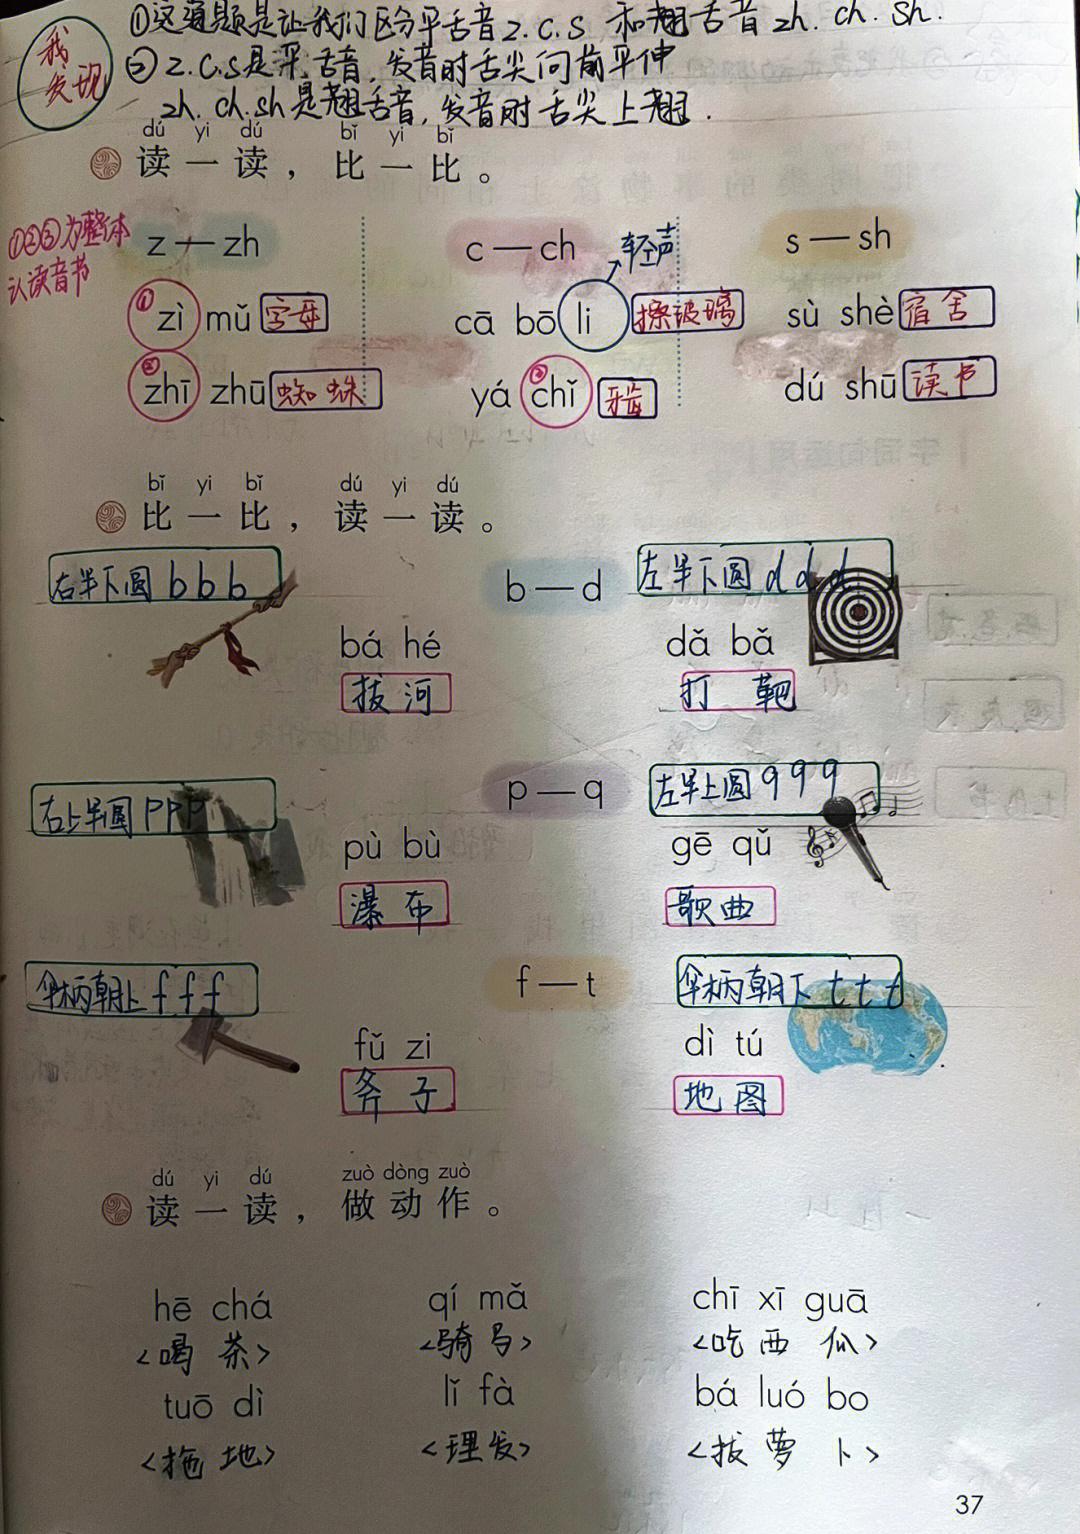 ①这道题是让我们区分平舌音z.c.s 和翘舌音zh.ch.sh.
我发现
②z.c.s是平舌音,发音时舌尖向前平伸
zh.ch.sh是翘舌音,发音时舌尖上翘.
dú yi dú bǐ yi bǐ
读一读,比一比。
①②③为整体认读音节
z—zh c—ch s—sh
轻声
①zì mǔ 字母 cā bō li 擦玻璃 sù shè 宿舍
②zhī zhū 蜘蛛 yá ③chǐ 牙齿 dú shū 读书
bǐ yi bǐ dú yi dú
比一比,读一读。
右半下圆 b b b b—d 左半下圆 d d d
bá hé dǎ bǎ
拔河 打靶
右上半圆 p p p p—q 左半上圆 q q q
pù bù gē qǔ
瀑布 歌曲
伞柄朝上 f f f f—t 伞柄朝下 t t t
fǔ zi dì tú
斧子 地图
dú yi dú zuò dòng zuò
读一读,做动作。
hē chá qí mǎ chī xī guā
<喝茶> <骑马> <吃西瓜>
tuō dì lǐ fà bá luó bo
<拖地> <理发> <拔萝卜>
37